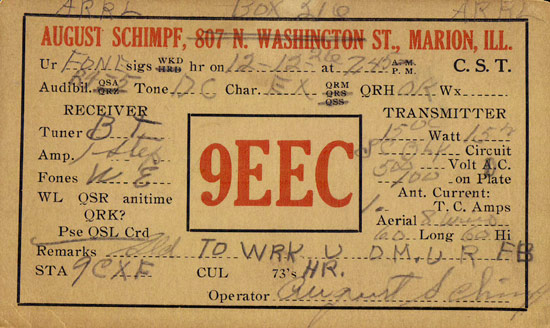 ARRL BOX 216 ARRL
AUGUST SCHIMPF, 807 N. WASHINGTON ST., MARION, ILL.
Ur sigs WKD HRD hr on 12-12-26 at 7:45 A.M. P.M. C. S. T.
Audibil. QSA QRZ Tone DC Char. EX QRM QRS QSS QRH OK Wx
RECEIVER
Tuner B T
Amp. 1 Step
Fones W E
WL QSR anitime
QRK?
Pse QSL Crd
9EEC
TRANSMITTER
Watt
Circuit
500 Volt A.C.
on Plate
Ant. Current:
1. T. C. Amps
Aerial 8 wires
60 Long 60 Hi
Remarks Glad TO WRK U DM. U R FB
STA 9CXF CUL 73's HR.
Operator August Schimpf